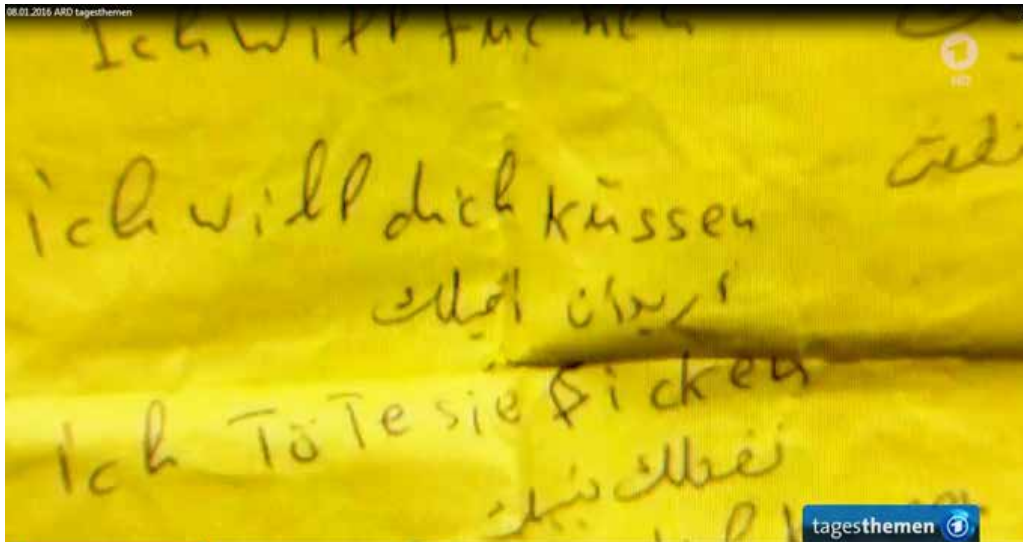 08.01.2016 ARD tagesthemen
Ich will fucken
HD
ich will dich küssen
أريد ان اقبلك
Ich TöTe sie ficken
نقتلك نيك
tagesthemen